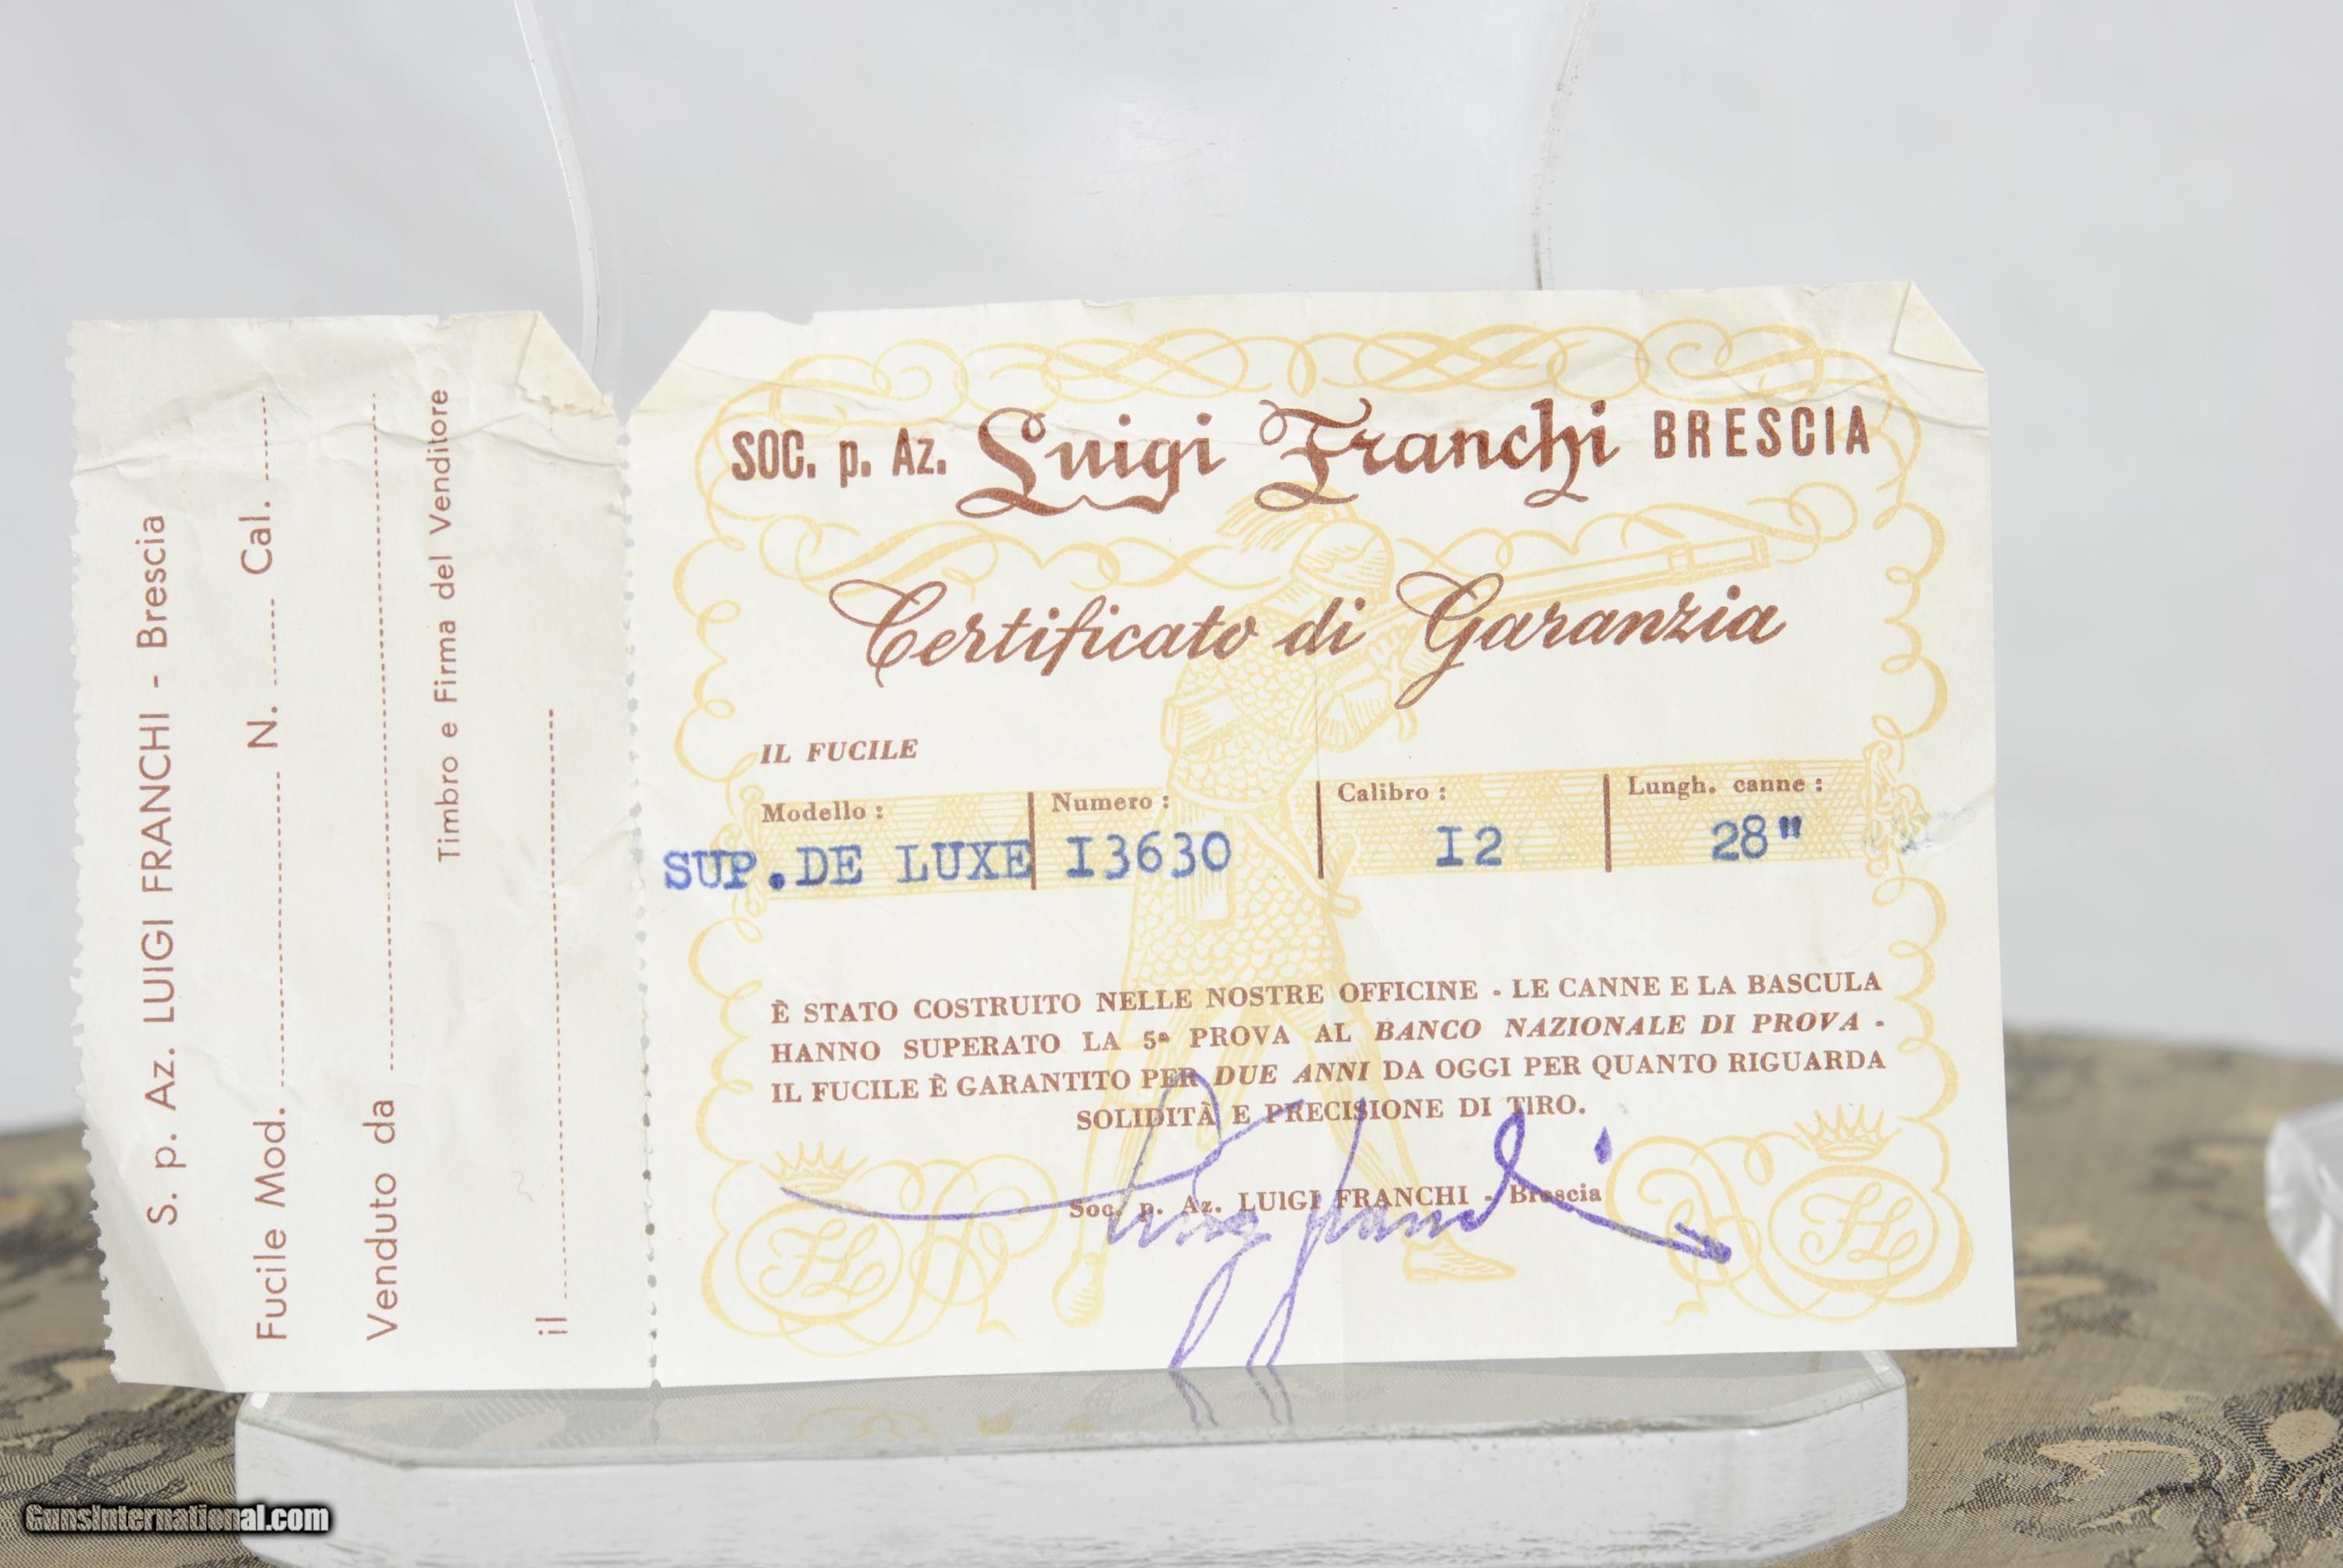 S. p. Az. LUIGI FRANCHI - Brescia
Fucile Mod. N. Cal.
Venduto da
Timbro e Firma del Venditore
il
SOC. p. Az. Luigi Franchi BRESCIA
Certificato di Garanzia
IL FUCILE
Modello : Numero : Calibro : Lungh. canne :
SUP.DE LUXE I3630 I2 28"
È STATO COSTRUITO NELLE NOSTRE OFFICINE - LE CANNE E LA BASCULA
HANNO SUPERATO LA 5ª PROVA AL BANCO NAZIONALE DI PROVA -
IL FUCILE È GARANTITO PER DUE ANNI DA OGGI PER QUANTO RIGUARDA
SOLIDITÀ E PRECISIONE DI TIRO.
Soc. p. Az. LUIGI FRANCHI - Brescia
Luigi Franchi
FL FL
GunsInternational.com